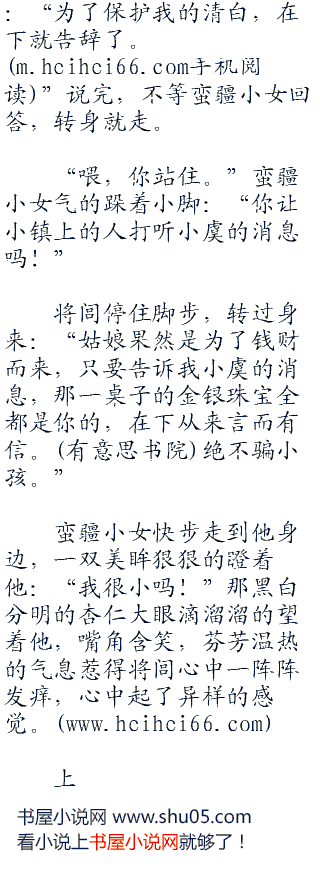 ：“为了保护我的清白，在
下就告辞了。
(m.hcihci66.com手机阅
读)”说完，不等蛮疆小女回
答，转身就走。
“喂，你站住。”蛮疆
小女气的跺着小脚：“你让
小镇上的人打听小虞的消息
吗！”
将闾停住脚步，转过身
来：“姑娘果然是为了钱财
而来，只要告诉我小虞的消
息，那一桌子的金银珠宝全
都是你的，在下从来言而有
信。(有意思书院)绝不骗小
孩。”
蛮疆小女快步走到他身
边，一双美眸狠狠的蹬着
他：“我很小吗！”那黑白
分明的杏仁大眼滴溜溜的望
着他，嘴角含笑，芬芳温热
的气息惹得将闾心中一阵阵
发痒，心中起了异样的感
觉。(www.hcihci66.com)
上
书屋小说网 www.shu05.com
看小说上书屋小说网就够了！